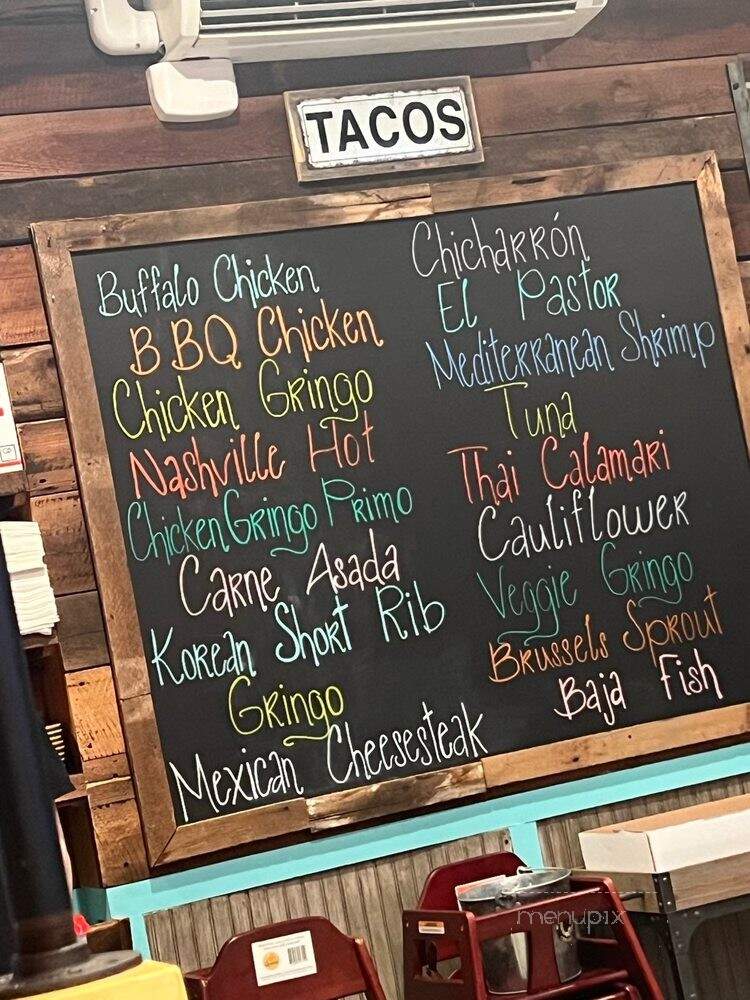 TACOS
Buffalo Chicken
BBQ Chicken
Chicken Gringo
Nashville Hot
Chicken Gringo Primo
Carne Asada
Korean Short Rib
Gringo
Mexican Cheesesteak
Chicharrón
El Pastor
Mediterranean Shrimp
Tuna
Thai Calamari
Cauliflower
Veggie Gringo
Brussels Sprout
Baja Fish
menupix